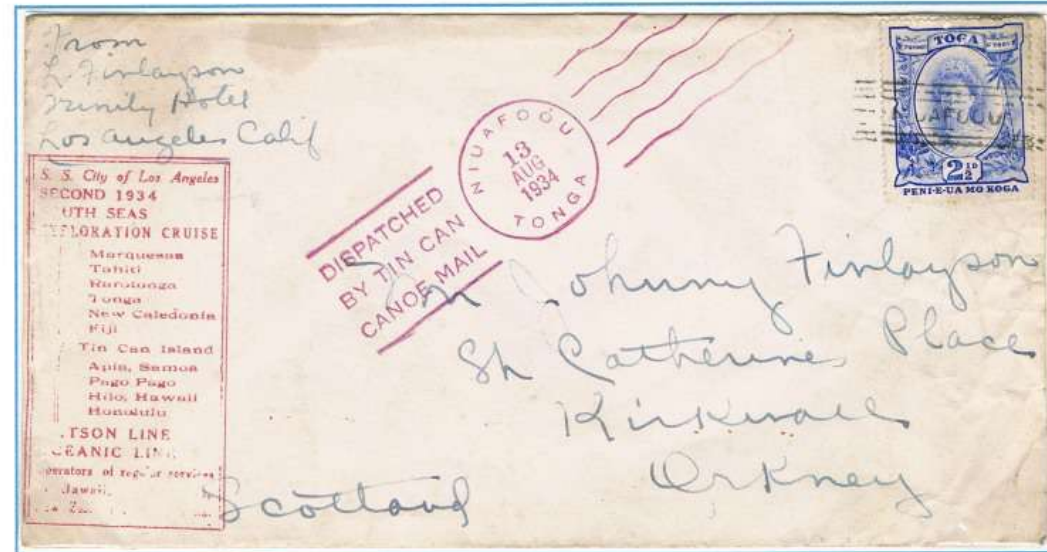 From
L. Finlayson
Trinity Hotel
Los Angeles Calif
S. S. City of Los Angeles
SECOND 1934
UTH SEAS
PLORATION CRUISE
Marquesas
Tahiti
Rarotonga
Tonga
New Caledonia
Fiji
Tin Can Island
Apia, Samoa
Pago Pago
Hilo, Hawaii
Honolulu
TSON LINE
CEANIC LINE
perators of regular services
Hawaii,
DISPATCHED
BY TIN CAN
CANOE MAIL
NIUAFOOU
13
AUG
1934
TONGA
TOGA
2½D
PENI-E-UA MO KOGA
Johnny Finlayson
St Catherines Place
Kirkwall
Orkney
Scotland